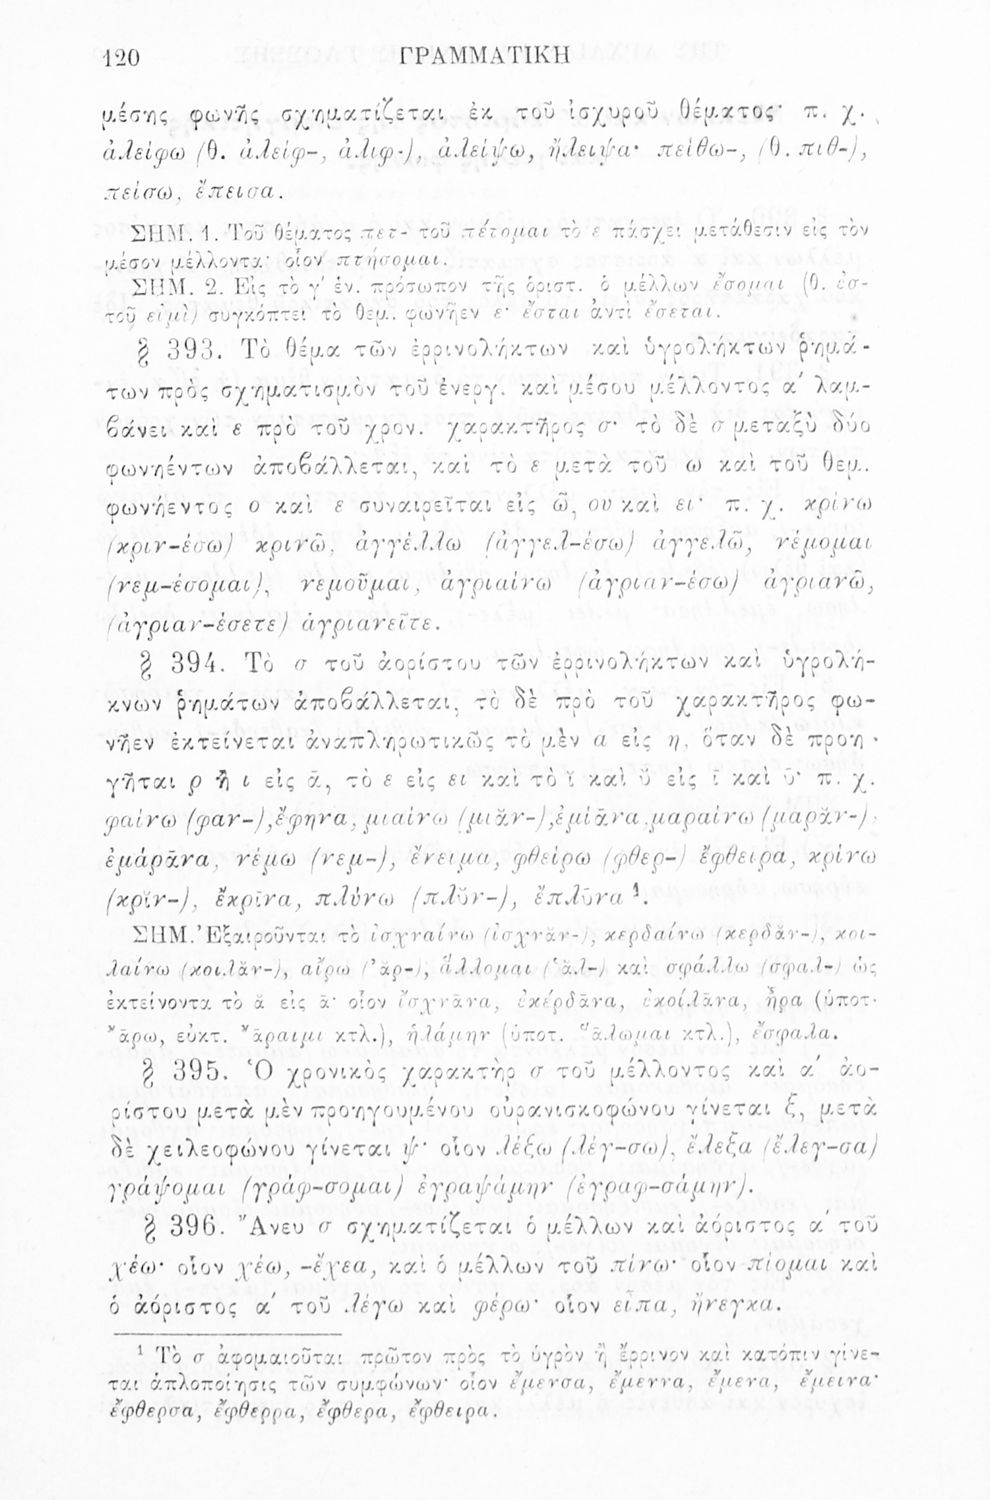 120 ΓΡΑΜΜΑΤΙΚΗ
μέσης φωνῆς σχηματίζεται ἐκ τοῦ ἰσχυροῦ θέματος· π. χ.
ἀλείφω (θ. ἀλείφ-, ἀλιφ-), ἀλείψω, ἤλειψα· πείθω-, (θ. πιθ-),
πείσω, ἔπεισα.
ΣΗΜ. 1. Τοῦ θέματος πετ- τοῦ πέτομαι τὸ ε πάσχει μετάθεσιν εἰς τὸν
μέσον μέλλοντα· οἷον πτήσομαι.
ΣΗΜ. 2. Εἰς τὸ γ΄ ἑν. πρόσωπον τῆς ὁριστ. ὁ μέλλων ἔσομαι (θ. ἐσ-
τοῦ εἰμὶ) συγκόπτει τὸ θεμ. φωνῆεν ε· ἔσται ἀντὶ ἔσεται.
§ 393. Τὸ θέμα τῶν ἐρρινολήκτων καὶ ὑγρολήκτων ῥημά-
των πρὸς σχηματισμὸν τοῦ ἐνεργ. καὶ μέσου μέλλοντος α΄ λαμ-
βάνει καὶ ε πρὸ τοῦ χρον. χαρακτῆρος σ· τὸ δὲ σ μεταξὺ δύο
φωνηέντων ἀποβάλλεται, καὶ τὸ ε μετὰ τοῦ ω καὶ τοῦ θεμ.
φωνήεντος ο καὶ ε συναιρεῖται εἰς ῶ, ου καὶ ει· π. χ. κρίνω
(κριν-έσω) κρινῶ, ἀγγέλλω (ἀγγελ-έσω) ἀγγελῶ, νέμομαι
(νεμ-έσομαι), νεμοῦμαι, ἀγριαίνω (ἀγριαν-έσω) ἀγριανῶ,
(ἀγριαν-έσετε) ἀγριανεῖτε.
§ 394. Τὸ σ τοῦ ἀορίστου τῶν ἐρρινολήκτων καὶ ὑγρολή-
κνων ῥημάτων ἀποβάλλεται, τὸ δὲ πρὸ τοῦ χαρακτῆρος φω-
νῆεν ἐκτείνεται ἀναπληρωτικῶς τὸ μὲν α εἰς η, ὅταν δὲ προη-
γῆται ρ ἢ ι εἰς ᾱ, τὸ ε εἰς ει καὶ τὸ ῐ καὶ ῠ εἰς ῑ καὶ ῡ· π. χ.
φαίνω (φαν-), ἔφηνα, μιαίνω (μιᾰν-), ἐμίᾱνα, μαραίνω (μαρᾰν-),
ἐμάρᾱνα, νέμω (νεμ-), ἔνειμα, φθείρω (φθερ-) ἔφθειρα, κρίνω
(κρῐν-), ἔκρῑνα, πλύνω (πλῠν-), ἔπλῡνα ¹.
ΣΗΜ. Ἐξαιροῦνται τὸ ἰσχναίνω (ἰσχνᾰν-), κερδαίνω (κερδᾰν-), κοι-
λαίνω (κοιλᾰν-), αἴρω (᾽ᾰρ-), ἅλλομαι (῾ᾰλ-) καὶ σφάλλω (σφαλ-) ὡς
ἐκτείνοντα τὸ ᾰ εἰς ᾱ· οἷον ἴσχνᾱνα, ἐκέρδᾱνα, ἐκοίλᾱνα, ἦρα (ὑποτ.
῎ᾱρω, εὐκτ. ῎ᾱραιμι κτλ.), ἡλάμην (ὑποτ. ῞ᾱλωμαι κτλ.), ἔσφαλα.
§ 395. Ὁ χρονικὸς χαρακτὴρ σ τοῦ μέλλοντος καὶ α΄ ἀο-
ρίστου μετὰ μὲν προηγουμένου οὐρανισκοφώνου γίνεται ξ, μετὰ
δὲ χειλεοφώνου γίνεται ψ· οἷον λέξω (λέγ-σω), ἔλεξα (ἔλεγ-σα)
γράψομαι (γράφ-σομαι) ἐγραψάμην (ἐγραφ-σάμην).
§ 396. Ἄνευ σ σχηματίζεται ὁ μέλλων καὶ ἀόριστος α΄ τοῦ
χέω· οἷον χέω, -ἔχεα, καὶ ὁ μέλλων τοῦ πίνω· οἷον πίομαι καὶ
ὁ ἀόριστος α΄ τοῦ λέγω καὶ φέρω· οἷον εἶπα, ἤνεγκα.
¹ Τὸ σ ἀφομαιοῦται πρῶτον πρὸς τὸ ὑγρὸν ἢ ἔρρινον καὶ κατόπιν γίνε-
ται ἁπλοποίησις τῶν συμφώνων· οἷον ἔμενσα, ἔμεννα, ἔμενα, ἔμεινα·
ἔφθερσα, ἔφθερρα, ἔφθερα, ἔφθειρα.